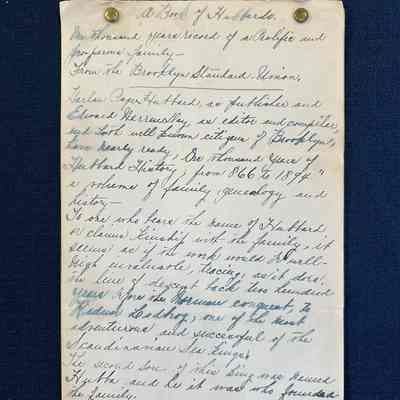 A Book of Hubbards.
One thousand years record of a Prolific and
prosperous family—
From the Brooklyn Standard Union.
Harlan Page Hubbard, as publisher and
Edward Warren Day, as editor and compiler,
and both well known citizens of Brooklyn,
have nearly ready, "One thousand years of
Hubbard History, from 866 to 1894"
a volume of family genealogy and
history—
To one who bears the name of Hubbard,
or claims kinship with the family, it
seems as if the work would be well-
nigh invaluable, tracing, as it does,
the line of descent back two hundred
years before the Norman conquest, to
Lodbrog, one of the most
adventurous and successful of the
Scandinavian Sea Kings.
The second son of this king was named
Hubba and he it was who founded
the family.